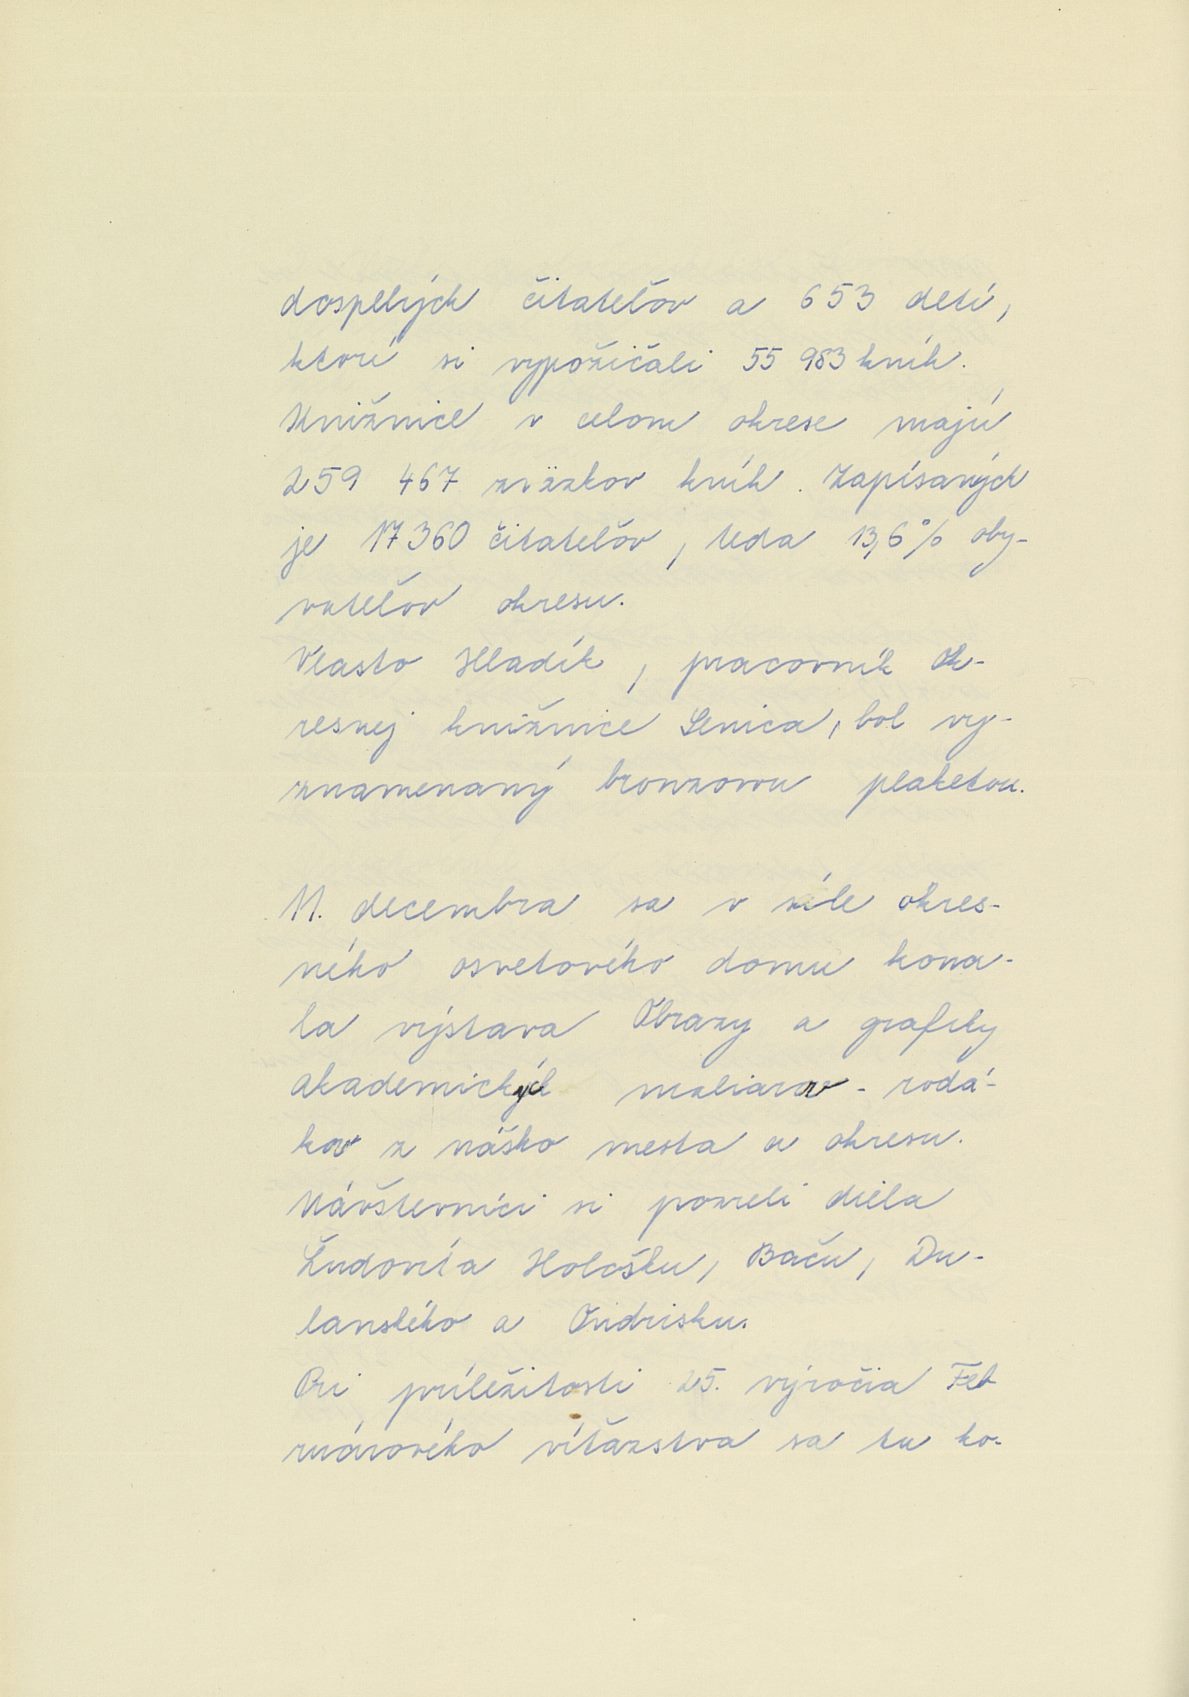 dospelých čitateľov a 653 detí,
ktorí si vypožičali 55 983 kníh.
Knižnice v celom okrese majú
259 467 zväzkov kníh. Zapísaných
je 17 360 čitateľov, teda 13,6% oby-
vateľov okresu.
Vlasto Hladík, pracovník Ok-
resnej knižnice Senica, bol vy-
znamenaný bronzovou plaketou.
11. decembra sa v sále okres-
ného osvetového domu kona-
la výstava Obrazy a grafiky
akademických maliarov - rodá-
kov z nášho mesta a okresu.
Návštevníci si pozreli diela
Ľudovíta Hološku, Baču, Du-
lanského a Ondrisku.
Pri príležitosti 25. výročia Feb
ruárového víťazstva sa tu ko-